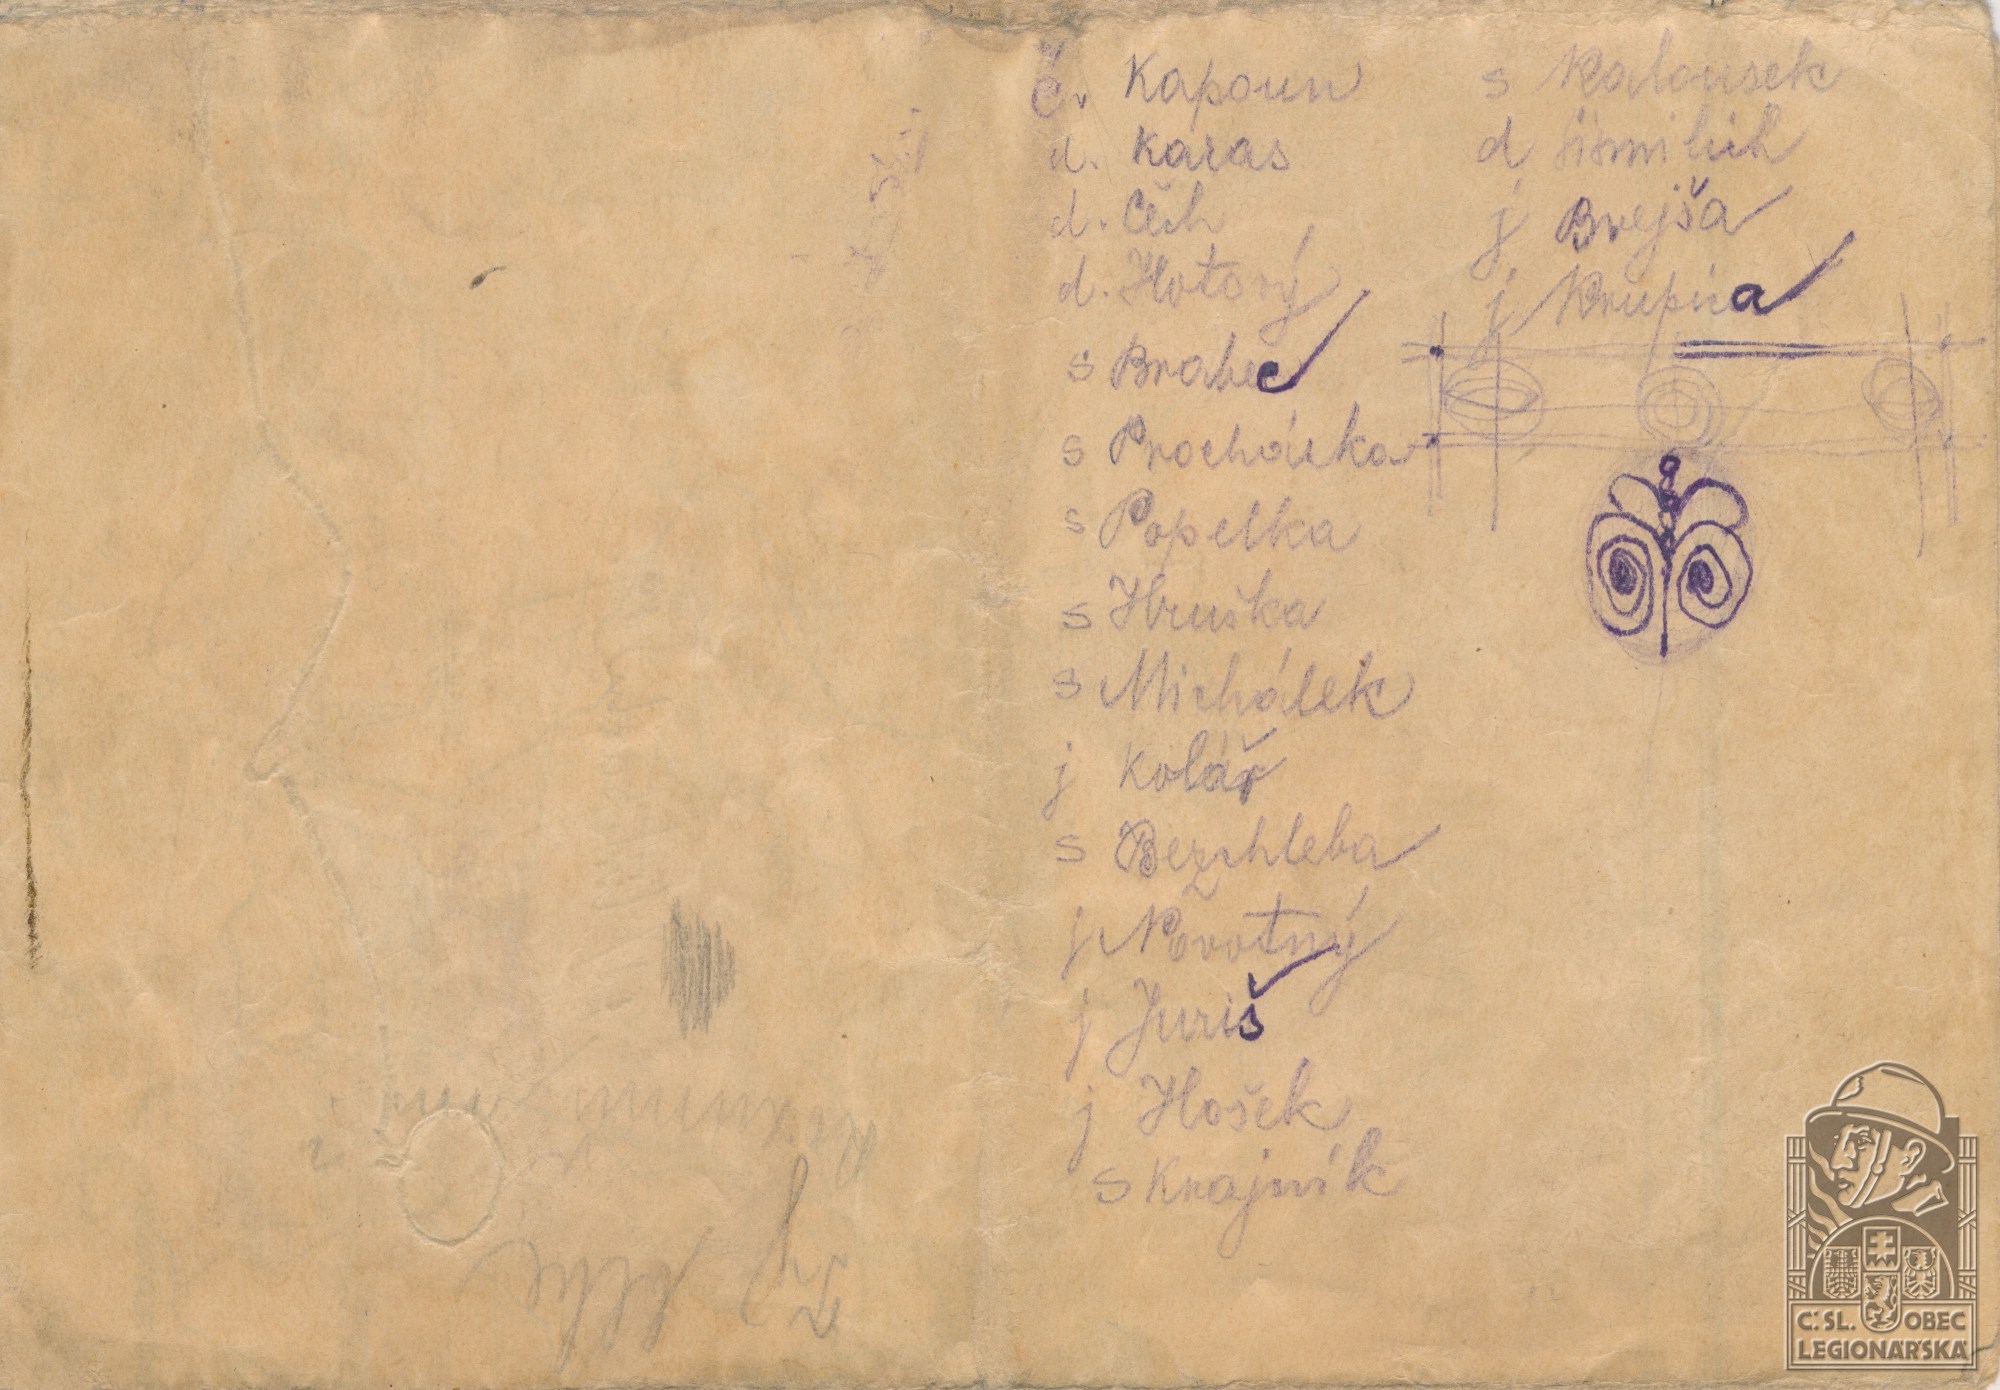 Č. Kapoun
d. Karas
d. Čech
d. Hotový
s Brabec
s Procházka
s Popelka
s Hruška
s Michálek
j Kolář
s Bezchleba
j Novotný
j Juriš
j Hošek
s Krajník
s Kalousek
d
j Brejša
j Krupica
Č. SL. OBEC
LEGIONÁŘSKÁ